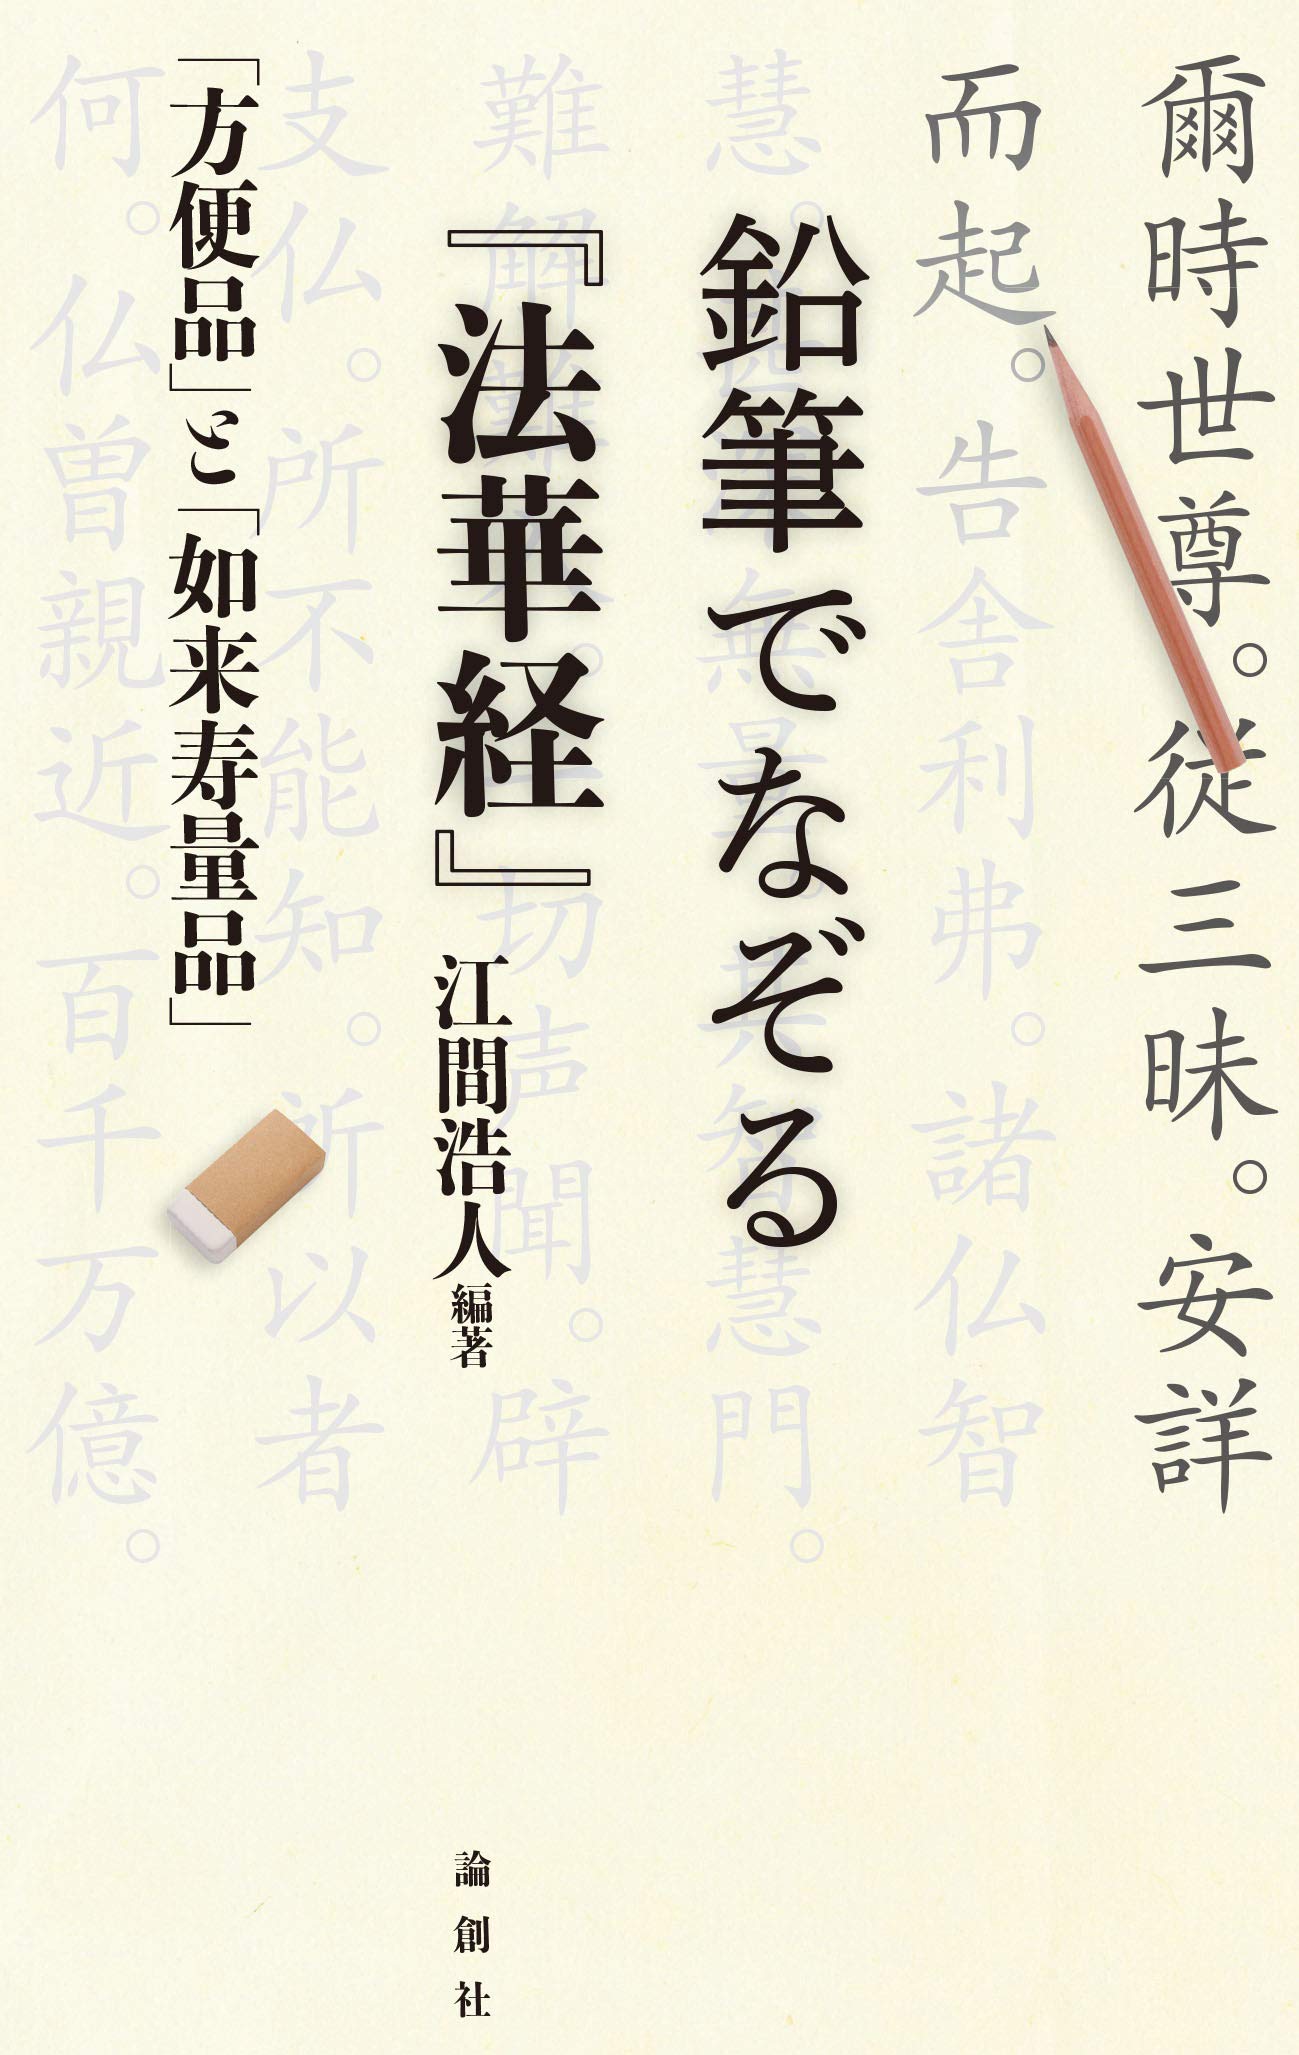 爾時世尊。従三昧。安詳
而起。告舎利弗。諸仏智
慧。甚深無量。其智慧門。
難解難入。一切声聞。辟
支仏。所不能知。所以者
何。仏曽親近。百千万億。
鉛筆でなぞる
『法華経』
江間浩人編著
「方便品」と「如来寿量品」
論創社